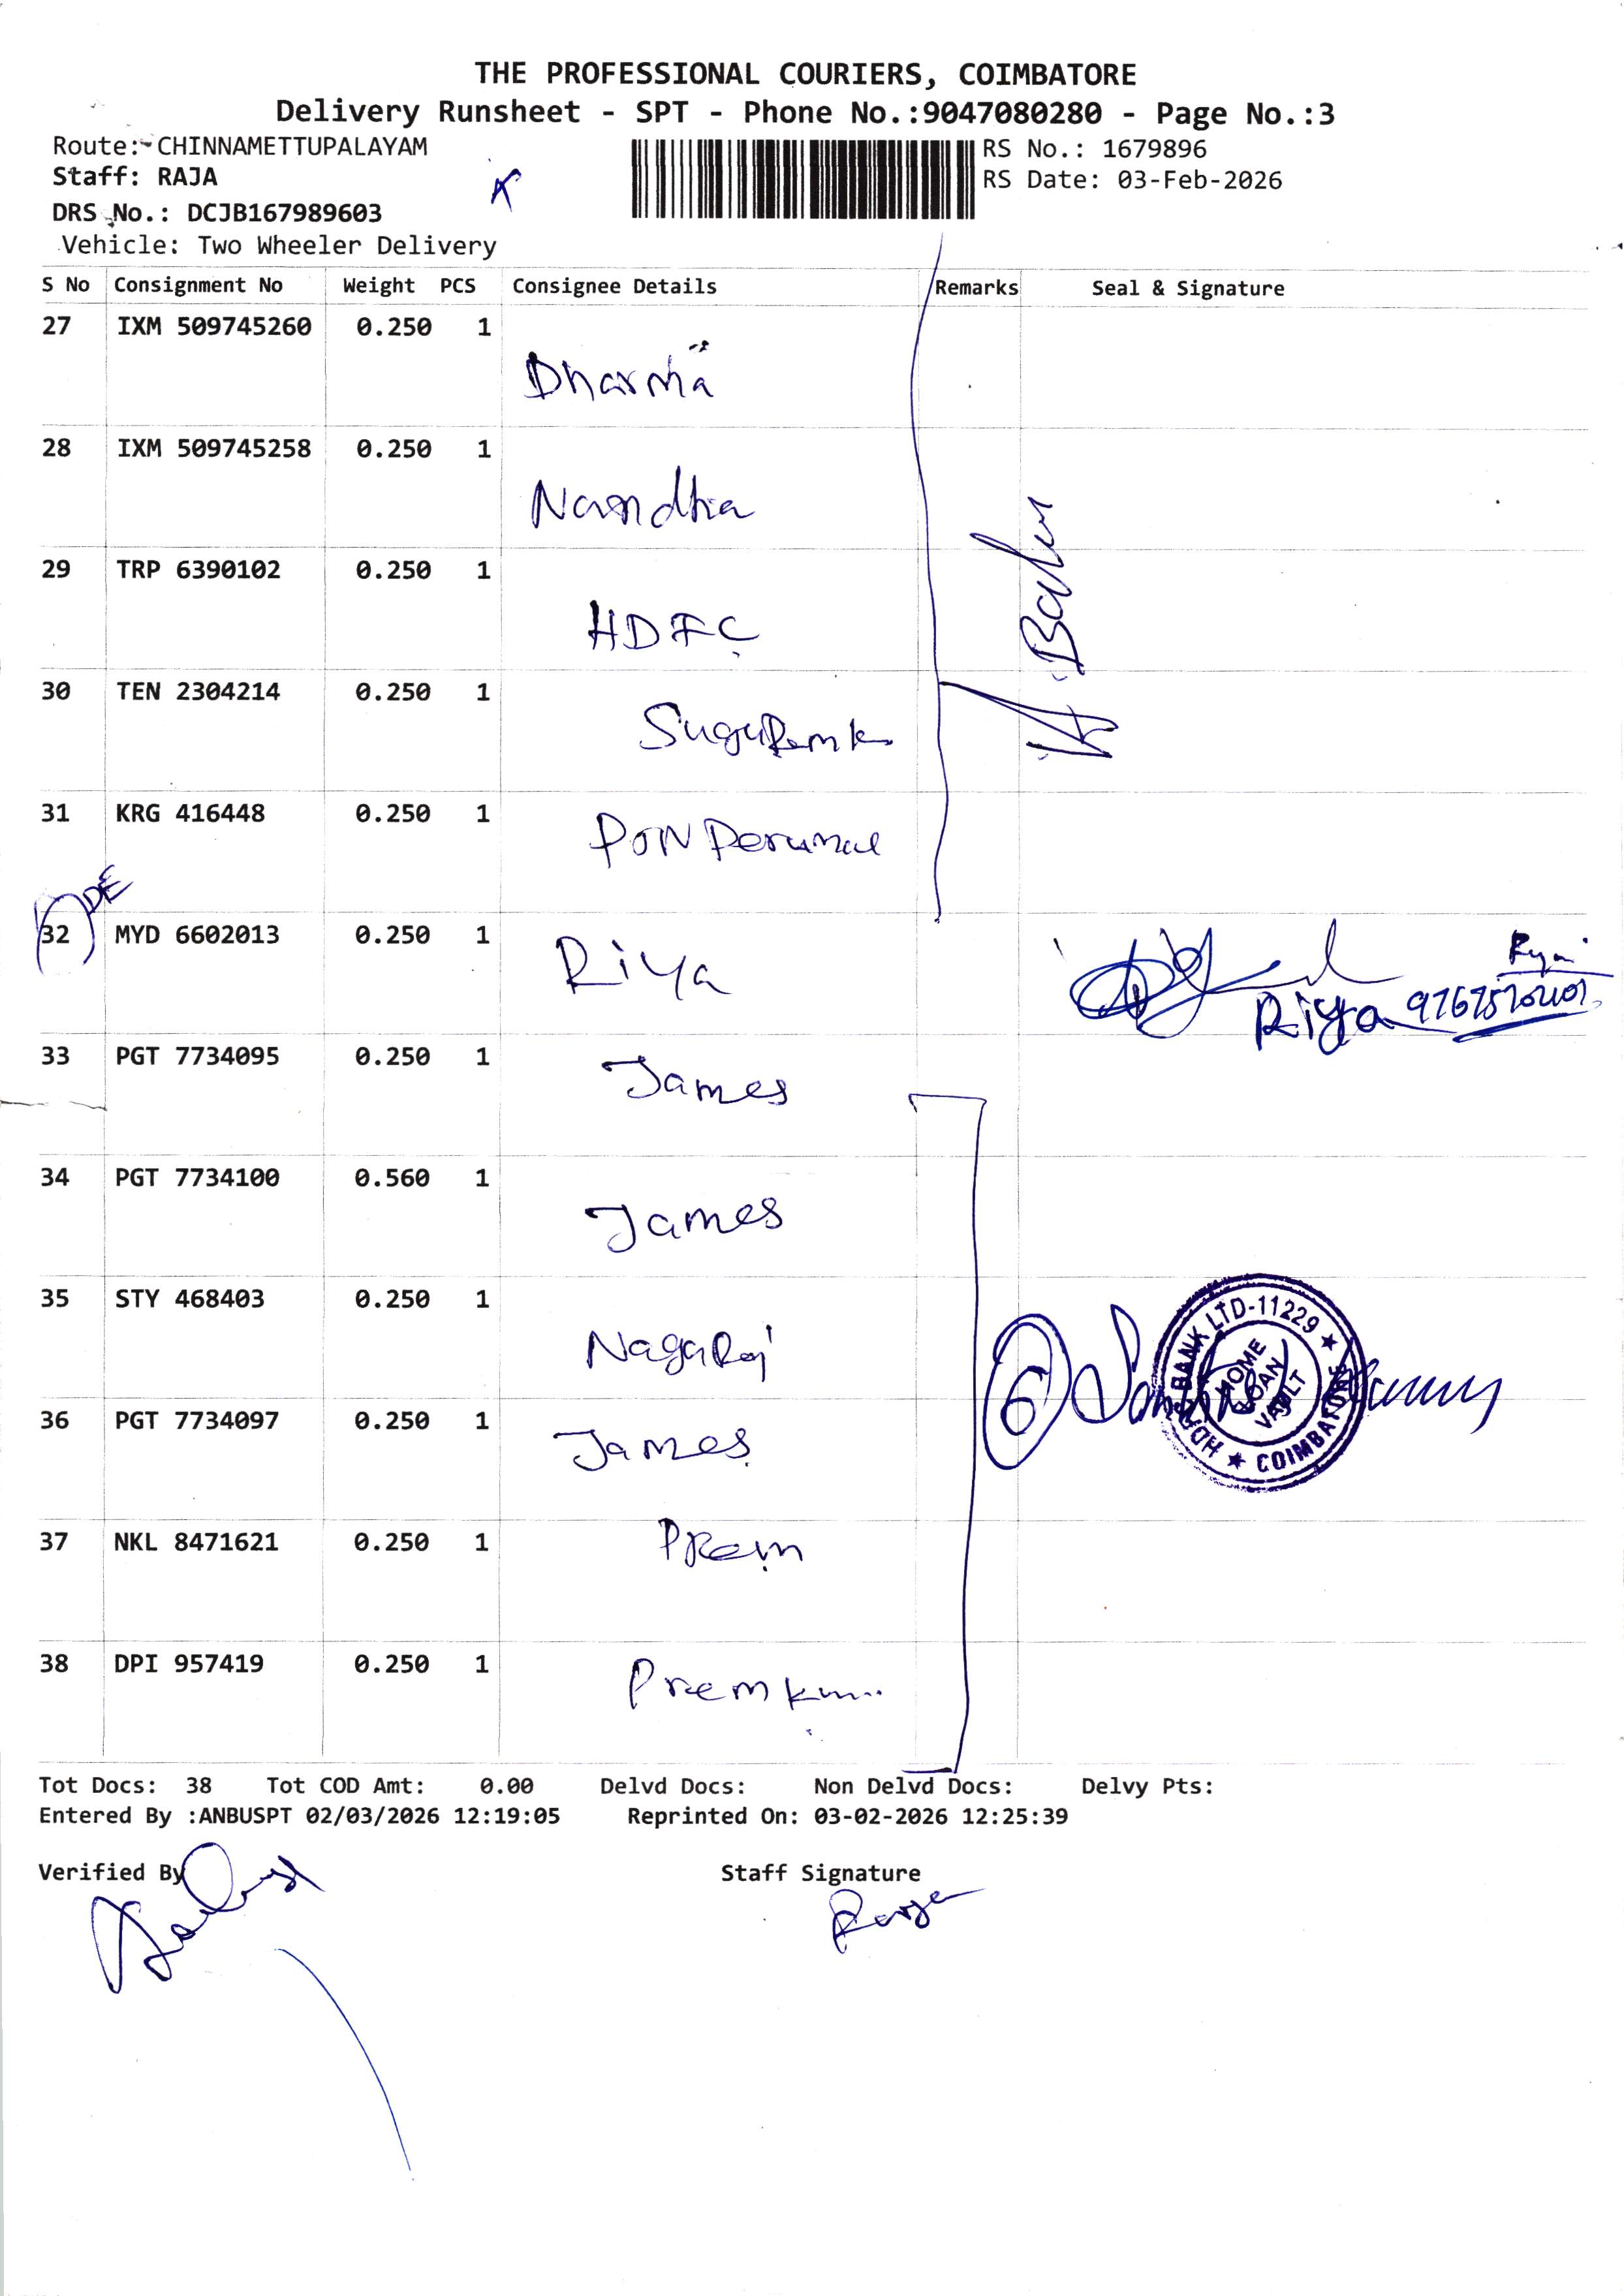 THE PROFESSIONAL COURIERS, COIMBATORE
Delivery Runsheet - SPT - Phone No.:9047080280 - Page No.:3
Route: CHINNAMETTUPALAYAM
RS No.: 1679896
Staff: RAJA
RS Date: 03-Feb-2026
DRS No.: DCJB167989603
Vehicle: Two Wheeler Delivery
S No Consignment No Weight PCS Consignee Details Remarks Seal & Signature
27 IXM 509745260 0.250 1 Dharma
28 IXM 509745258 0.250 1 Nandha
29 TRP 6390102 0.250 1 HDFC
30 TEN 2304214 0.250 1
31 KRG 416448 0.250 1 PON Perumal
Babu
DE
32 MYD 6602013 0.250 1 Riya
Riya
33 PGT 7734095 0.250 1 James
34 PGT 7734100 0.560 1 James
35 STY 468403 0.250 1 NagaRaj
6
HDFC BANK LTD-11229 ★ COIMBATORE ★
HOME LOAN VAULT
36 PGT 7734097 0.250 1 James
37 NKL 8471621 0.250 1 Prem
38 DPI 957419 0.250 1 Premkum
Tot Docs: 38 Tot COD Amt: 0.00 Delvd Docs: Non Delvd Docs: Delvy Pts:
Entered By :ANBUSPT 02/03/2026 12:19:05 Reprinted On: 03-02-2026 12:25:39
Verified By Staff Signature
Raja